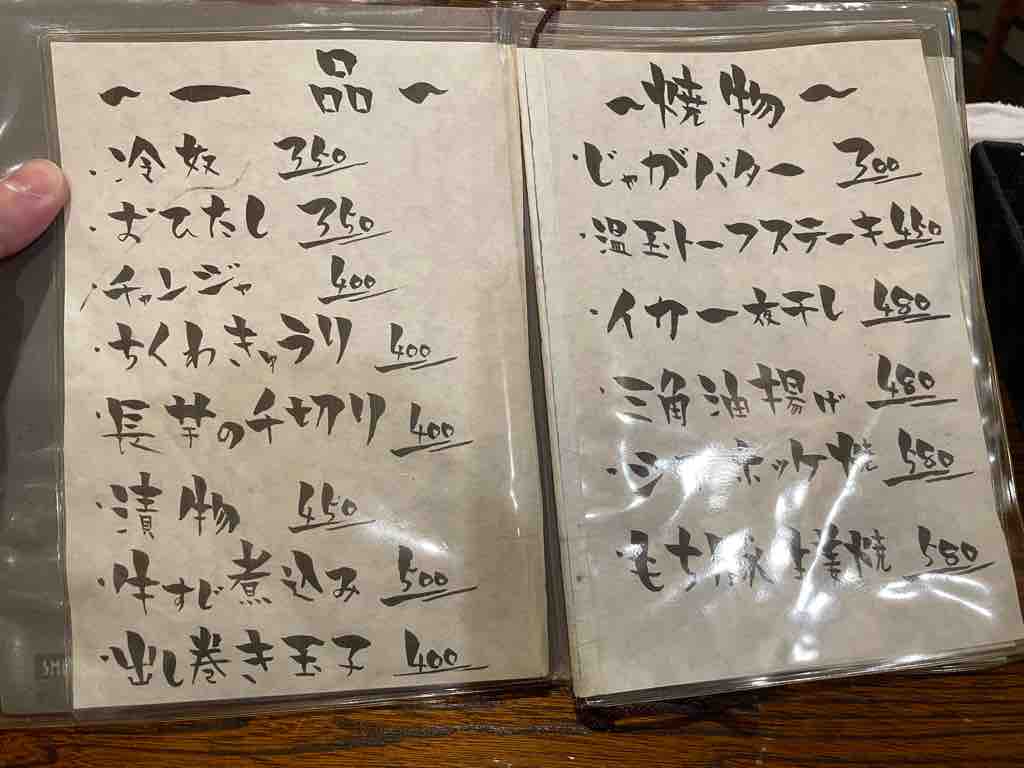 ～一品～
・冷奴 350
・おひたし 350
・チャンジャ 400
・ちくわきゅうり 400
・長芋の千切り 400
・漬物 450
・牛すじ煮込み 500
・出し巻き玉子 400
～焼物～
・じゃがバター 300
・温玉トーフステーキ 450
・イカ一夜干し 480
・三角油揚げ 480
・シマホッケ焼 580
・もち豚生姜焼 580